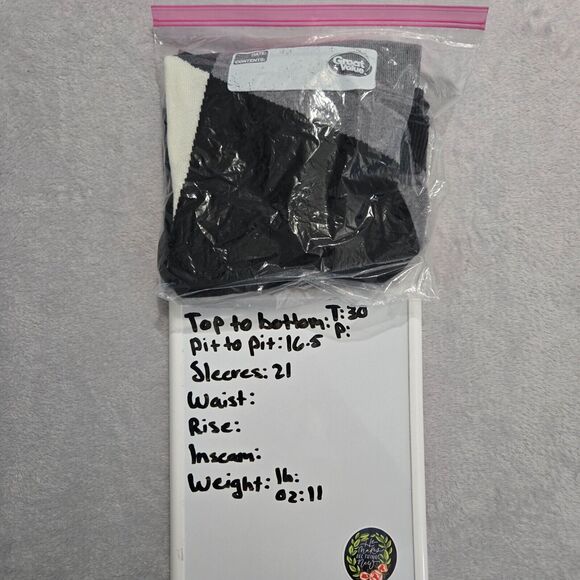 DATE:
CONTENTS:
Great Value
Top to bottom: T:30
P:
Pit to Pit: 16.5
Sleeves: 21
Waist:
Rise:
Inseam:
Weight: lb:
oz: 11
he
makes
all things
new